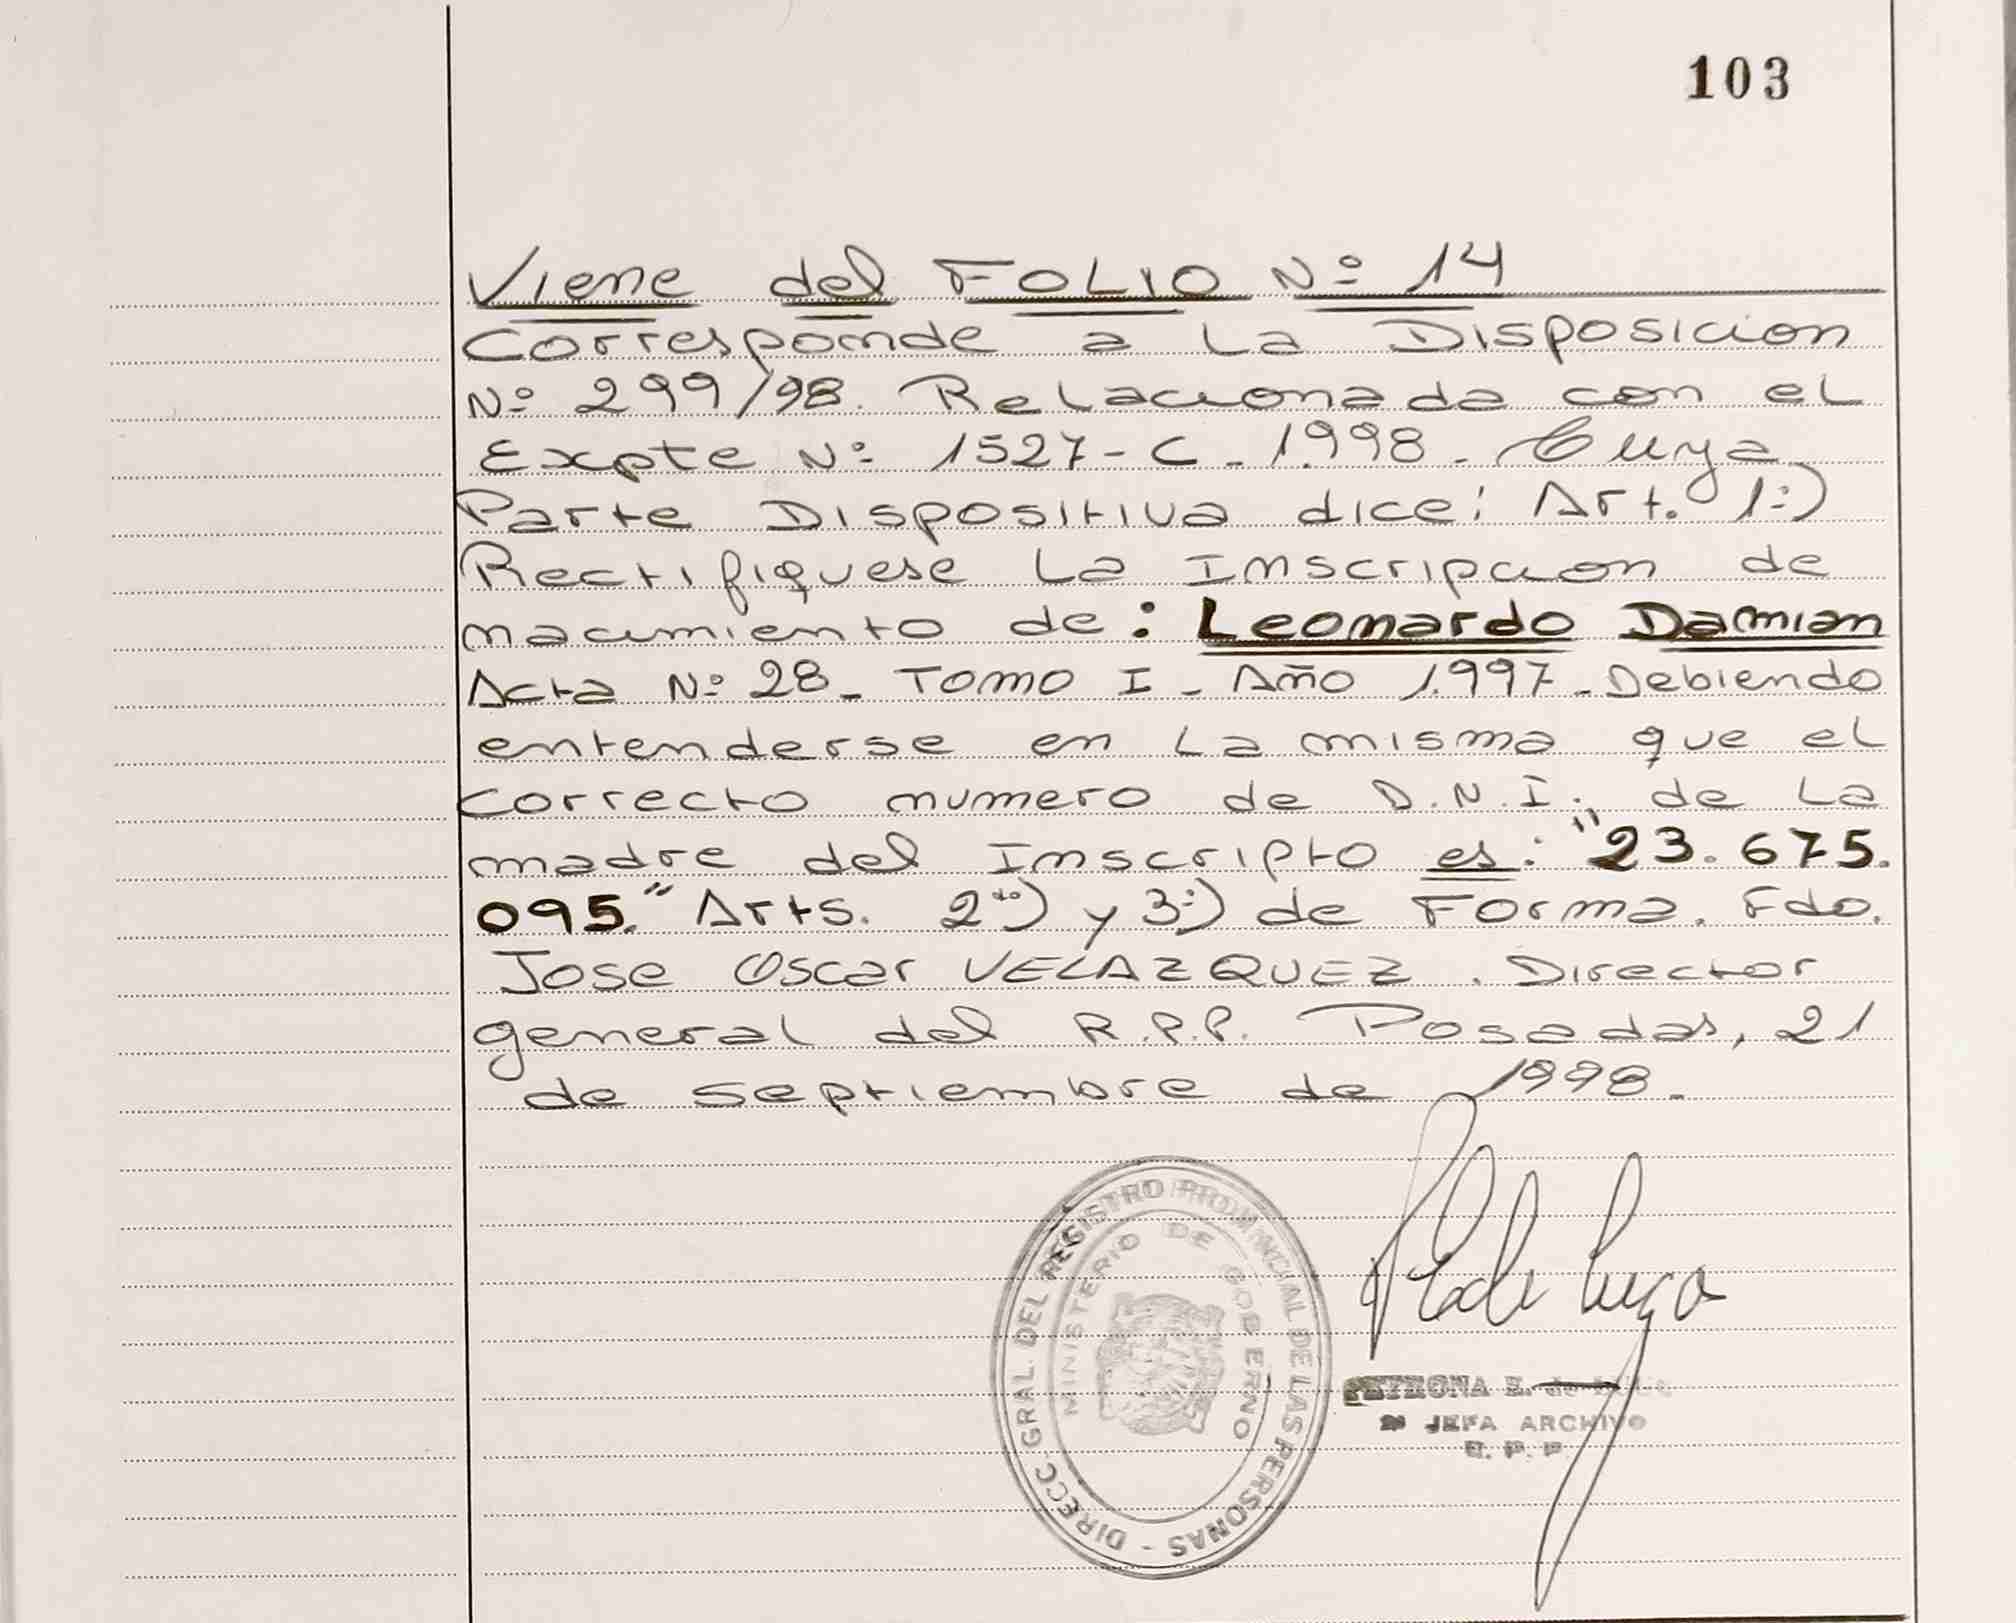 103
Viene del FOLIO Nº 14
Corresponde a La Disposicion
Nº 299/98. Relacionada con el
Expte Nº 1527-C-1998. Cuya
Parte Dispositiva dice: Art. 1º)
Rectifiquese La Inscripcion de
nacimiento de: Leonardo Damian
Acta Nº 28- Tomo I- Año 1997-Debiendo
entenderse en La misma que el
correcto numero de D.N.I. de La
madre del Inscripto es: "23.675.
095." Arts. 2do) y 3º) de Forma. Fdo.
Jose Oscar VELAZQUEZ. Director
general del R.P.P. Posadas, 21
de septiembre de 1998.
DIRECC. GRAL. DEL REGISTRO PROVINCIAL DE LAS PERSONAS -
MINISTERIO DE GOBIERNO
PETRONA E. de
JEFA ARCHIVO
R. P. P.